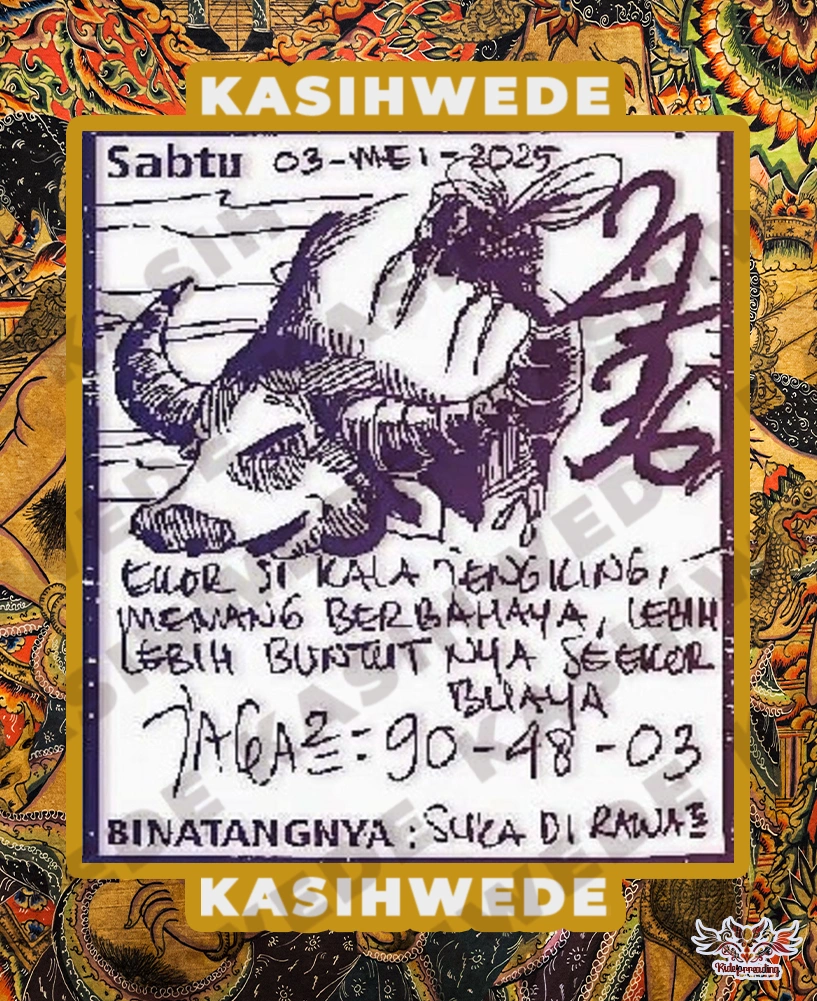 KASIHWEDE
Sabtu 03-MEI-2025
27
36
EKOR SI KALA JENGKING,
MEMANG BERBAHAYA, LEBIH
LEBIH BUNTUT NYA SEEKOR
BUAYA
JAGA2 = 90-48-03
BINATANGNYA : SUKA DI RAWA2
KASIHWEDE